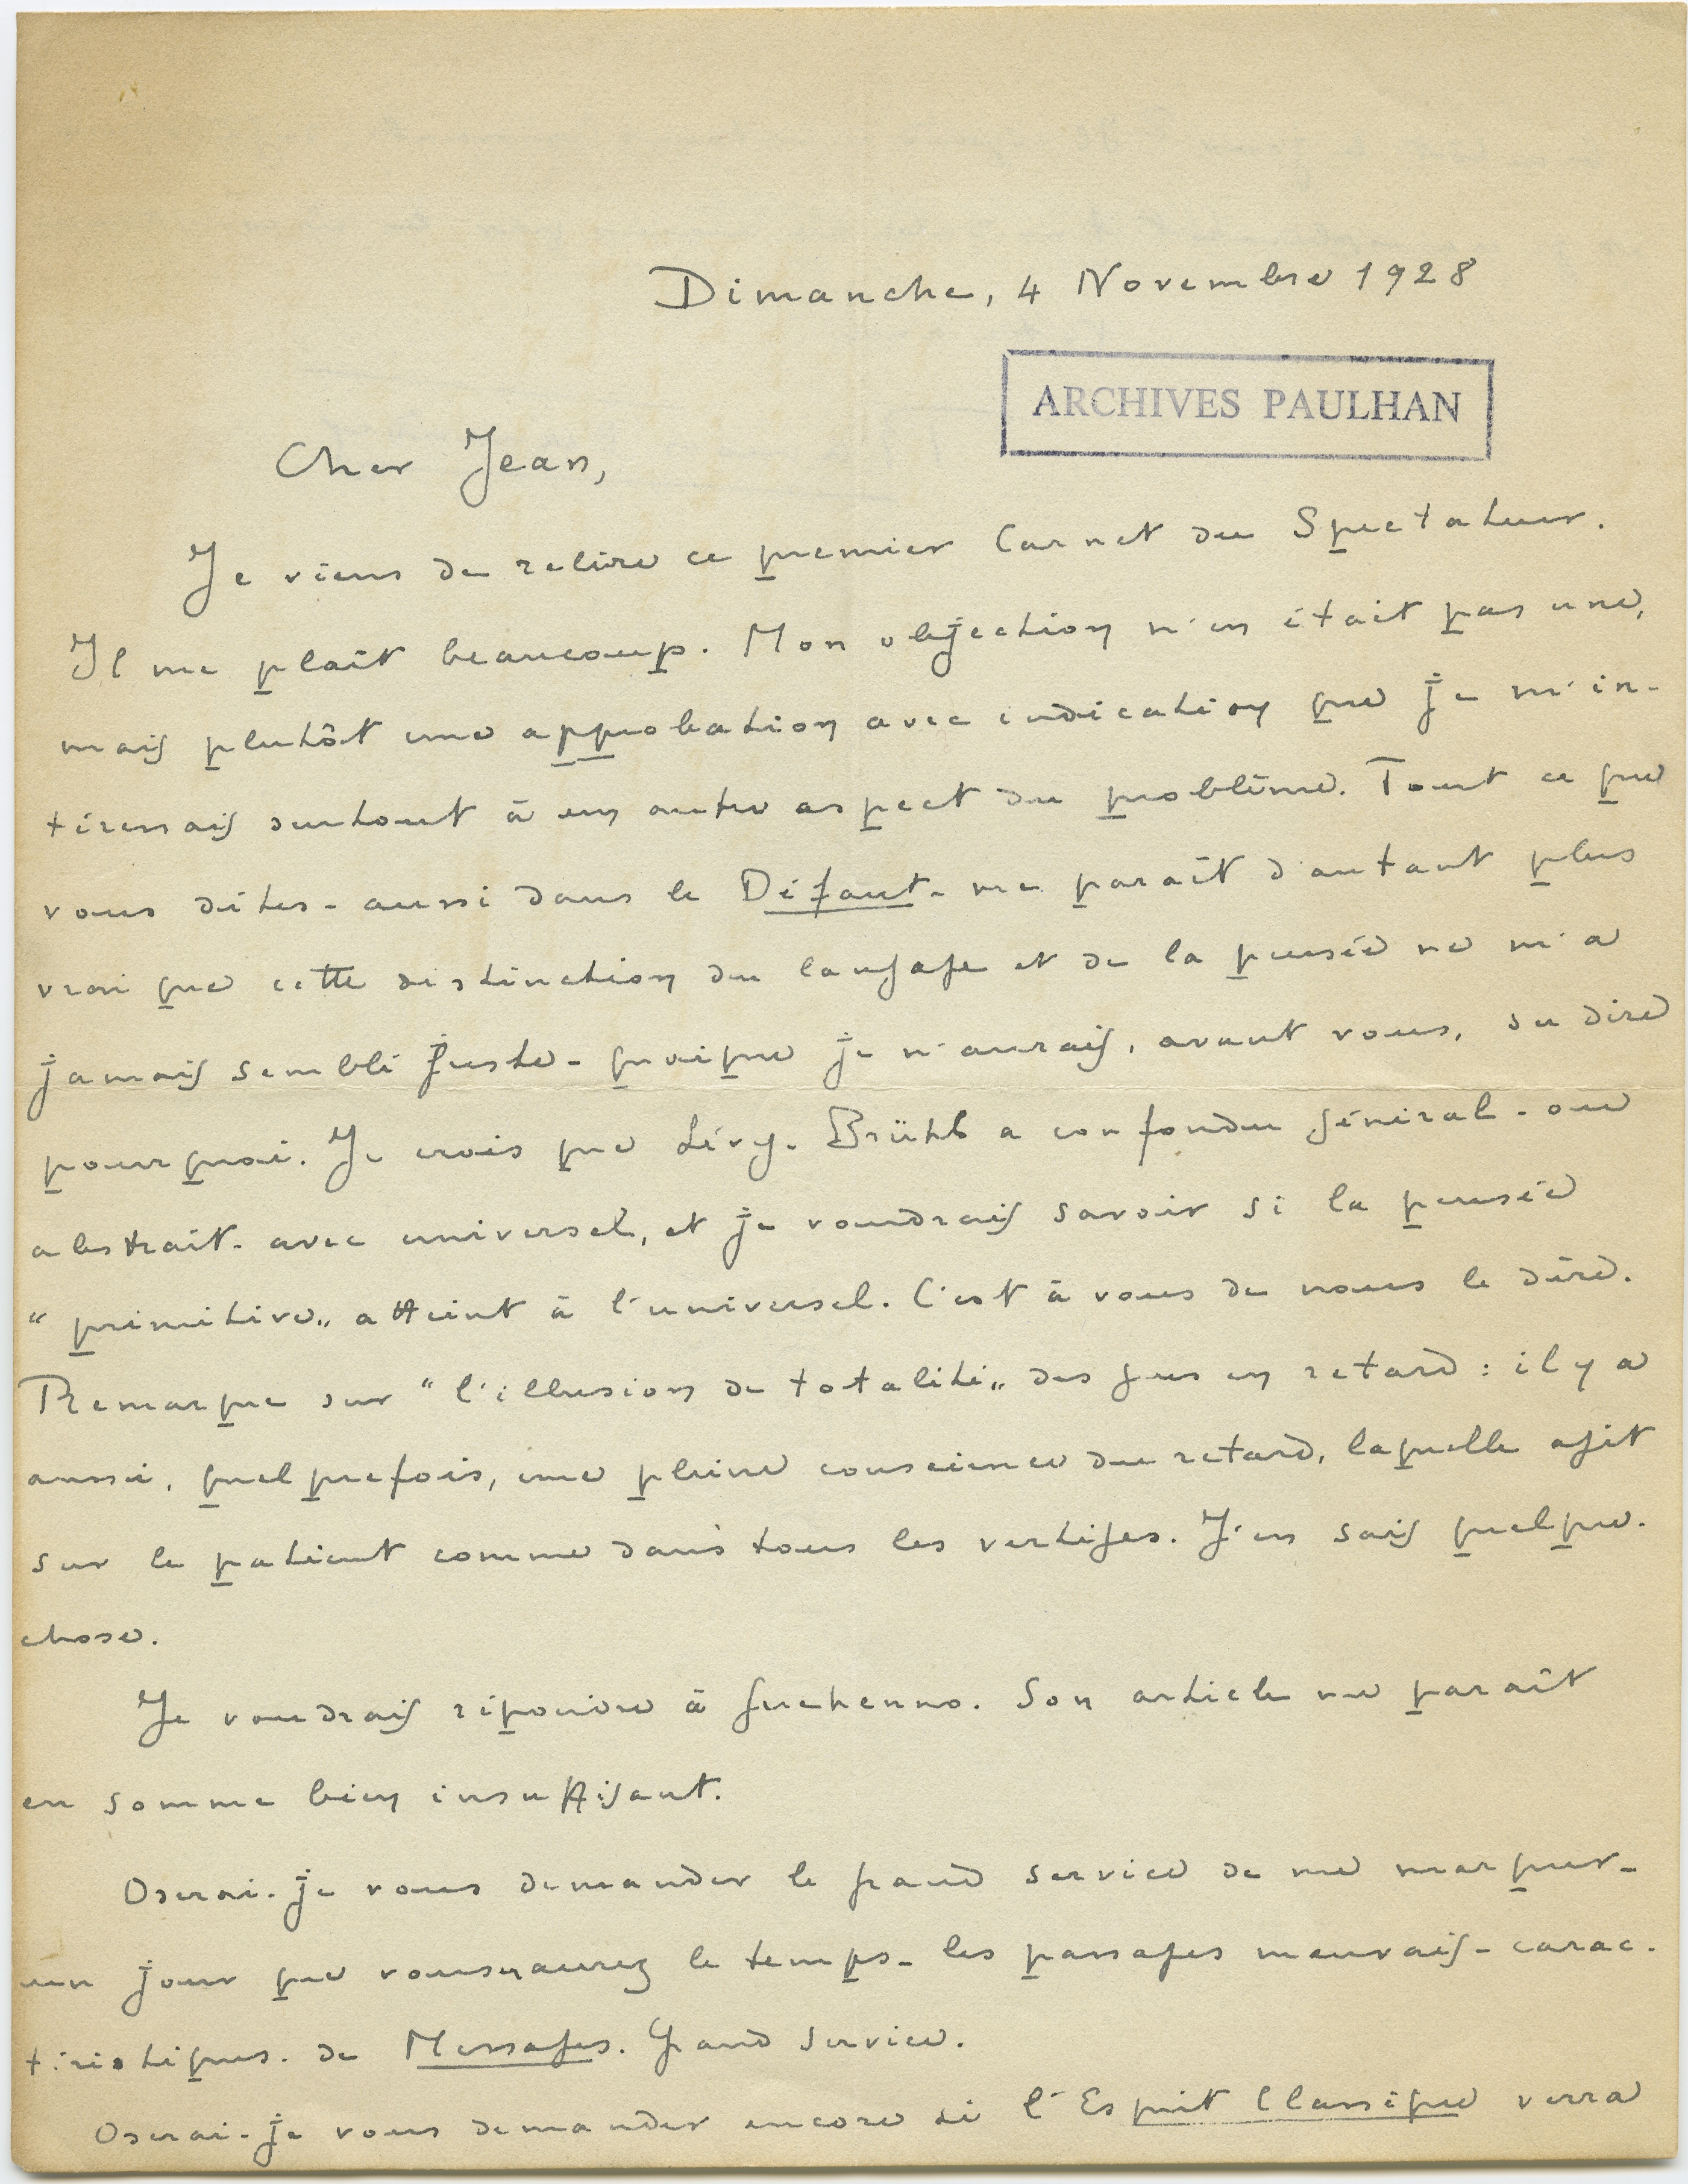 Dimanche, 4 Novembre 1928
ARCHIVES PAULHAN
Cher Jean,
Je viens de relire ce premier Carnet du Spectateur.
Il me plaît beaucoup. Mon objection n'en était pas une,
mais plutôt une approbation avec indication que je m'in-
téressais surtout à un autre aspect du problème. Tout ce que
vous dites - aussi dans le Défaut - me paraît d'autant plus
vrai que cette distinction du langage et de la pensée ne m'a
jamais semblé juste - quoique je n'aurais, avant vous, su dire
pourquoi. Je crois que Lévy-Brühl a confondu général - ou
abstrait - avec universel, et je voudrais savoir si la pensée
"primitive" atteint à l'universel. C'est à vous de nous le dire.
Remarque sur "l'illusion de totalité" des gens en retard : il y a
aussi, quelquefois, une pleine conscience du retard, laquelle agit
sur le patient comme dans tous les vertiges. J'en sais quelque-
chose.
Je voudrais répondre à Guehenno. Son article me paraît
en somme bien insuffisant.
Oserai-je vous demander le grand service de me marquer -
un jour que vous aurez le temps - les passages mauvais - carac-
téristiques - de Messages. Grand service.
Oserai-je vous demander encore si l'Esprit Classique verra